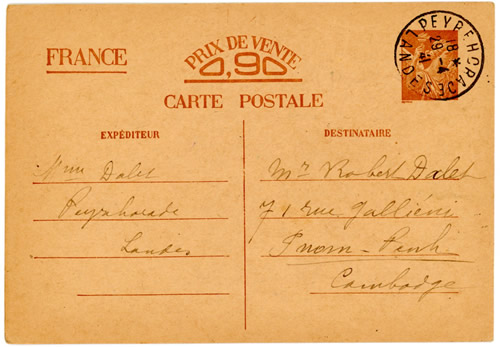 FRANCE
PRIX DE VENTE
0,90
CARTE POSTALE
PEYREHORADE
LANDES
18 *
29 -4
41
EXPÉDITEUR
Mme Dalet
Peyrehorade
Landes
DESTINATAIRE
Mr Robert Dalet
71 rue Galliéni
Pnom-Penh
Cambodge